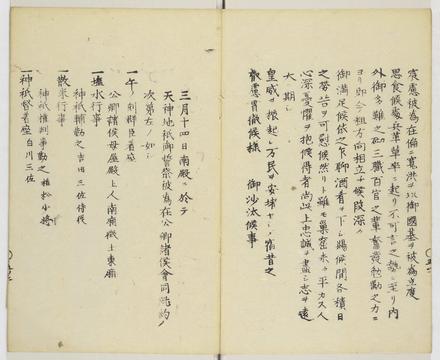 宸慮被為在偏ニ寛洪ヲ以御國基ヲ被為立度
思食候處兵革草率ニ起リ不可言之勢ニ至リ内
外御多難之砌三職百官之輩奮發勉勵之力ニ
ヨリ即今粗方向相立チ候段深ク
御満足候依之乍聊酒肴ヲ下シ賜候間各積日
之勞苦可慰候然リト雖モ巣窟未タ平カス人
心深憂懼ヲ抱候得者尚此上忠誠ヲ盡シ志ヲ遠
大ニ期シ
皇威ヲ振起シ万民ヲ安堵セシメ舊昔之
叡慮貫徹候様 御沙汰候事
三月十四日南殿ニ於テ
天神地祇御誓祭被為在公卿諸侯會同ノ
次第左ノ如シ
一午ノ刻群臣着座
公卿諸侯母屋殿上人南廂徴士東廂
一塩水行事
神祇輔勤之吉田三位侍従
一散米行事
神祇権判事勤之植松少将
一神祇督着座白川三位